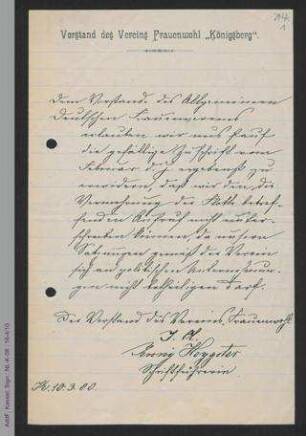 14.
1
Vorstand des Vereins Frauenwohl „Königsberg“.
Dem Vorstande des Allgemeinen
Deutschen Frauenvereins
erlauben wir uns hierauf
die gefällige Zuschrift vom
Februar d. J. ergebenst zu
erwidern, daß wir den, die
Vermehrung der Flotte betref-
fenden Aufruf nicht unter-
schreiben können, da unseren
Satzungen gemäß der Verein
sich an politischen Unternehmun-
gen nicht beteiligen darf.
Der Vorstand des Vereins Frauenwohl
I. A.
Schriftführerin
K. 10.3.00.
AddF, Kassel, Sign.: NL-K-08 ; 16-4/10